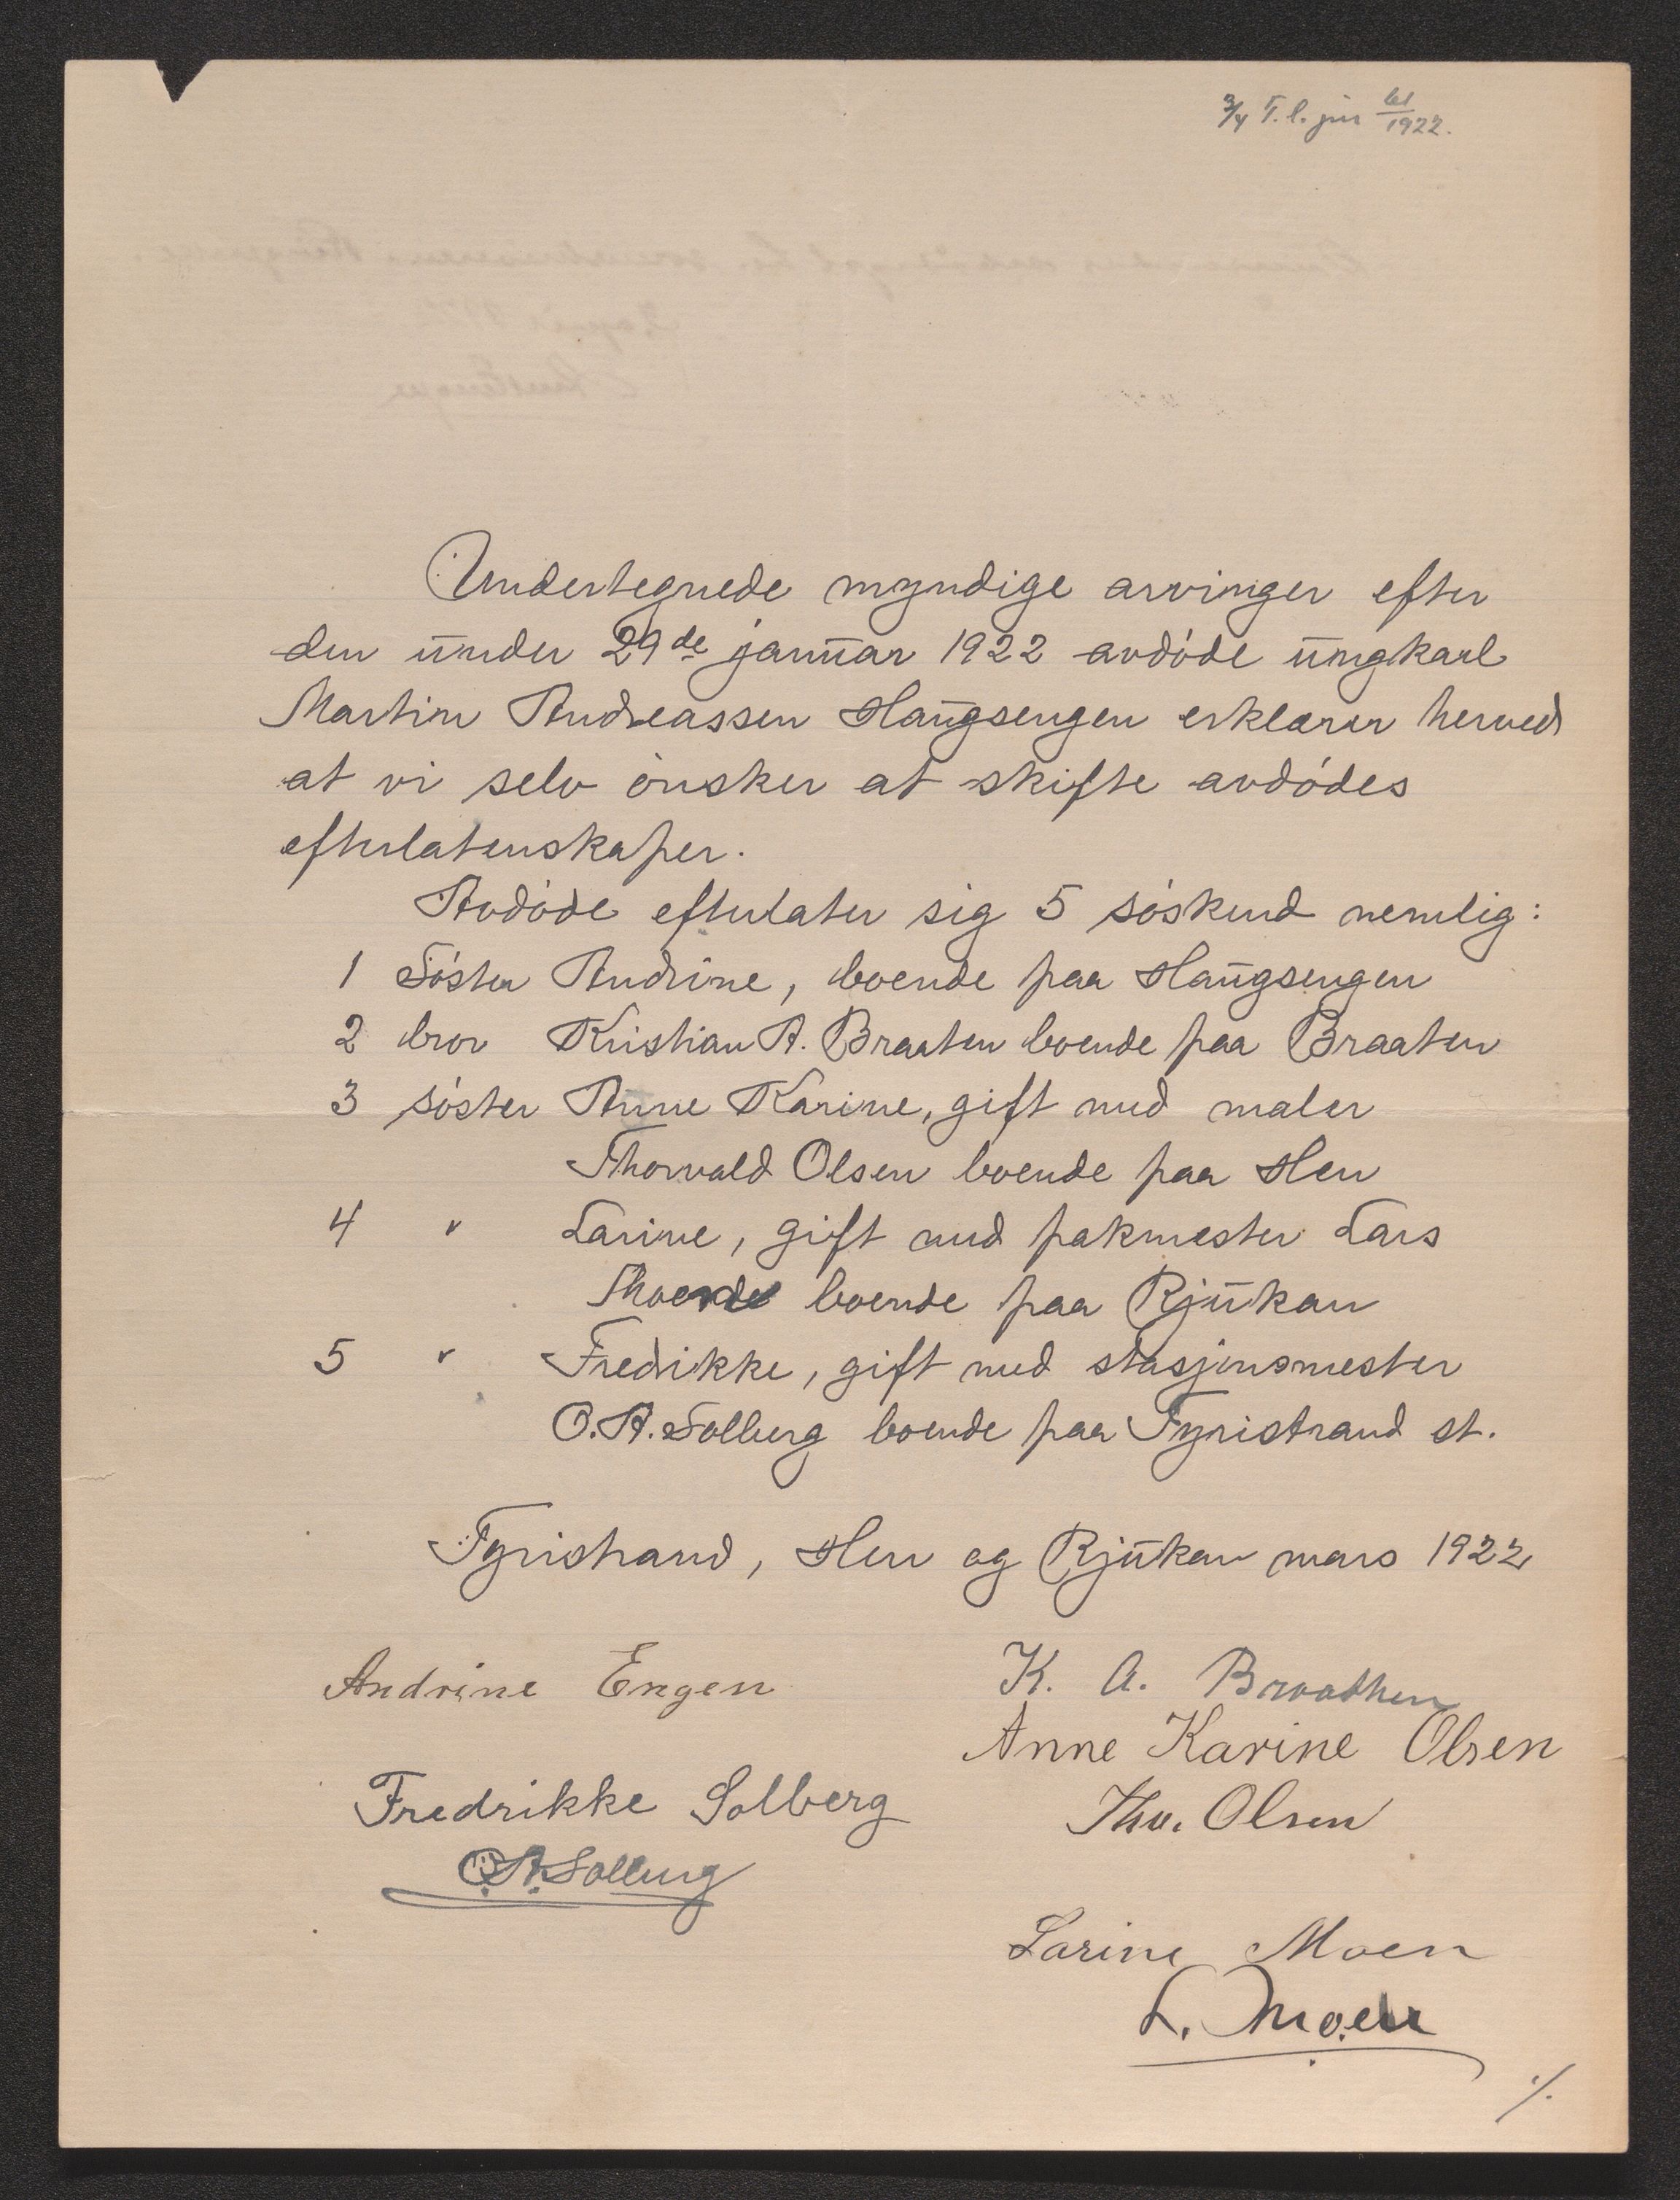 3/4 T. l. jnr 61/1922.
Undertegnede myndige arvinger efter
den under 29de januar 1922 avdøde ungkarl
Martin Andreassen Haugsengen erklærer herved
at vi selv ønsker at skifte avdødes
efterlatenskaper.
Avdøde efterlater sig 5 søskend nemlig:
1 Søster Andrine, boende paa Haugsengen
2 bror Kristian A. Braaten boende paa Braaten
3 søster Anne Karine, gift med maler
Thorvald Olsen boende paa Hen
4 " Larine, gift med pakmester Lars
Moen boende paa Rjukan
5 " Fredrikke, gift med stasjonsmester
O. A. Solberg boende paa Tyristrand st.
Tyristrand, Hen og Rjukan mars 1922
Andrine Engen
K. A. Braathen
Anne Karine Olsen
Fredrikke Solberg
Thv. Olsen
O.A. Solberg
Larine Moen
L. Moen
./.